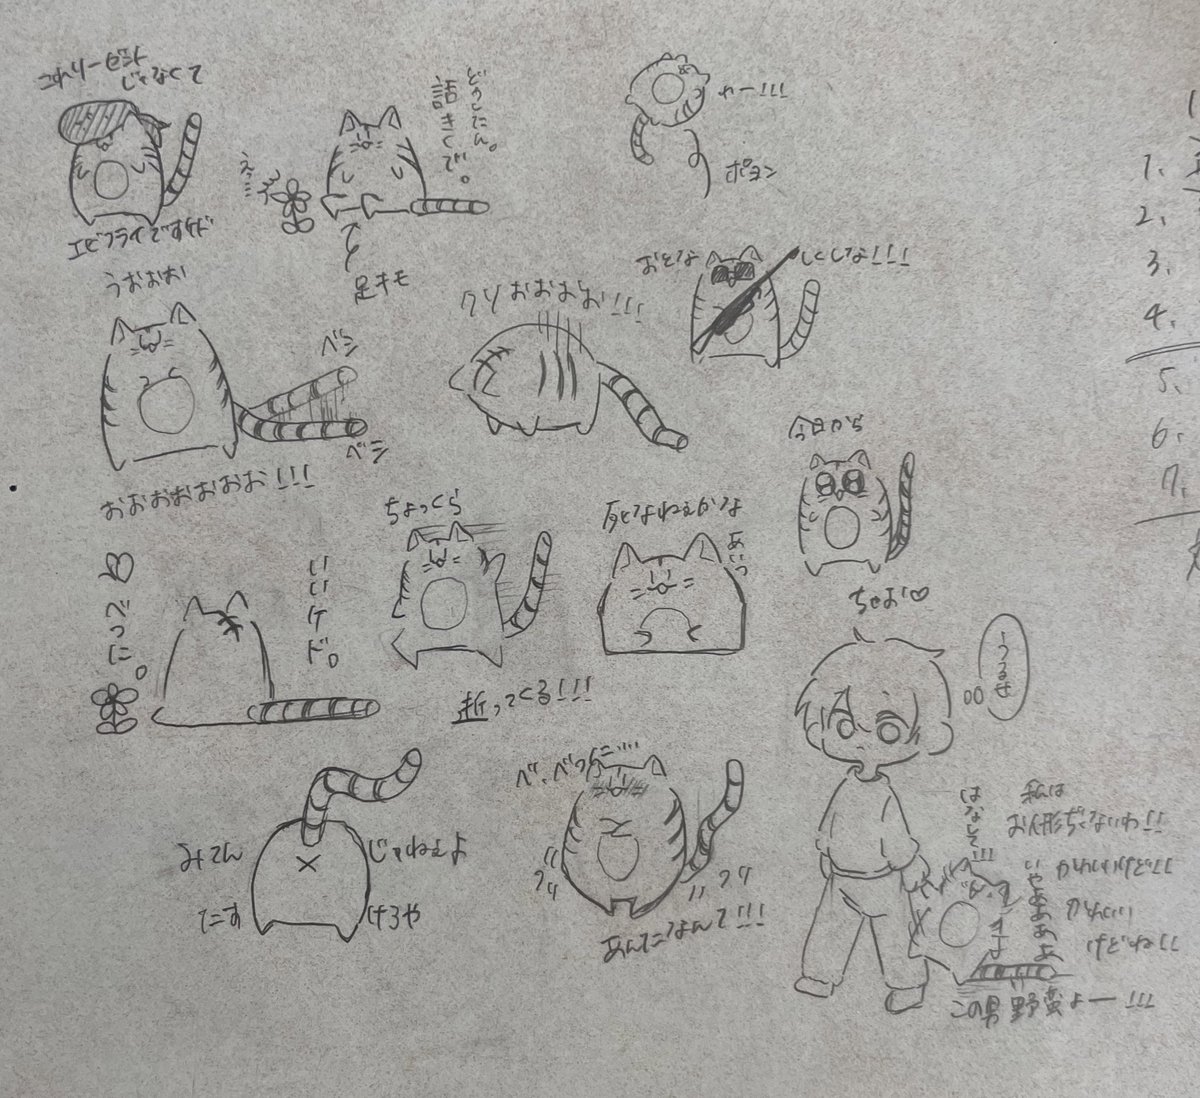 これリーゼント
じゃなくて
エビフライですケド
どうしたん。
話きくで。
えっ…
足キモ
ゎー!!!
ポヨン
うおおお
ベシ
ベシ
おおおおおおお!!!
クソおおおお!!!
おとな
しくしな!!!
今日から
ちょっくら
逝ってくる!!!
死にてよねぇかな
あいつ
べつに。
いいけド。
うるせ
みてん
じゃねぇよ
てこす
けろや
べ、べつに…
クク
クク
あんたなんて!!!
はなして!!!
私は
お人形ぢゃないわ!!
かわいいけど!!
かわいい
けどね!!
いやああああ
この男野蛮よー!!!
1、
2、
3、
4、
5、
6、
7、